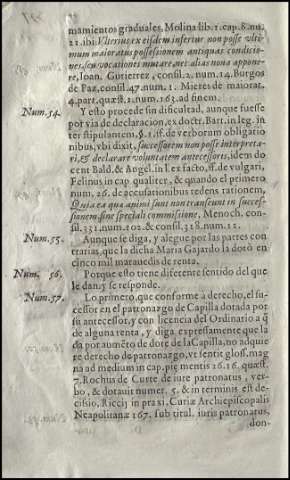 mamientos graduales, Molina lib. 1. cap. 8. nu.
22. ibi: Vlterius ex eisdem infertur non posse vlti-
mum maioratus possessorem antiquas conditio-
nes, seu vocationes mutare, nec alias nouas appone-
re, Ioan. Gutierrez, consil. 2. num. 14. Burgos
de Paz, consil. 47. num. 1. Mieres de maiorat.
4. part. quæst. 1. num. 163. ad finem.
Num. 54. Y esto procede sin dificultad, aunque fuesse
por via de declaracion, ex doct. Bart. in leg. in-
ter stipulantem, §. 1. ff. de verborum obligatio
nibus, vbi dixit, successorem non posse interpreta-
ri, & declarare voluntatem antecessoris, idem do
cent Bald. & Angel. in l. ex facto, ff. de vulgari,
Felinus in cap. qualiter, & quando el primero
num. 26. de accusationibus redens rationem,
Quia ea quæ animi sunt non transeunt in succes-
sionem, sine speciali commissione, Menoch. con-
sil. 331. num. 102. & consil. 318. num. 11.
Num. 55. Aunque se diga, y alegue por las partes con
trarias, que la dicha Maria Gajardo la dotò en
cinco mil marauedis de renta.
Num. 56. Porque esto tiene diferente sentido del que
le dan, y se responde.
Num. 57. Lo primero, que conforme a derecho, el su-
cessor en el patronazgo de Capilla dotada por
su antecessor, y con licencia del Ordinario a q̃
de alguna renta, y diga expressamente que la
da por aumẽto de dote de la Capilla, no adquie
re derecho de patronazgo, vt sentit gloss. mag-
na ad medium in cap. piæ mentis 16. 16. quæst.
7. Rochus de Curte de iure patronatus, ver-
bo, & dotauit numer. 5. & in terminis est de-
cisio, Riccij in praxi. Curiæ Archiepiscopalis
Neapolitanæ 167. sub titul. iuris patronatus,
don-